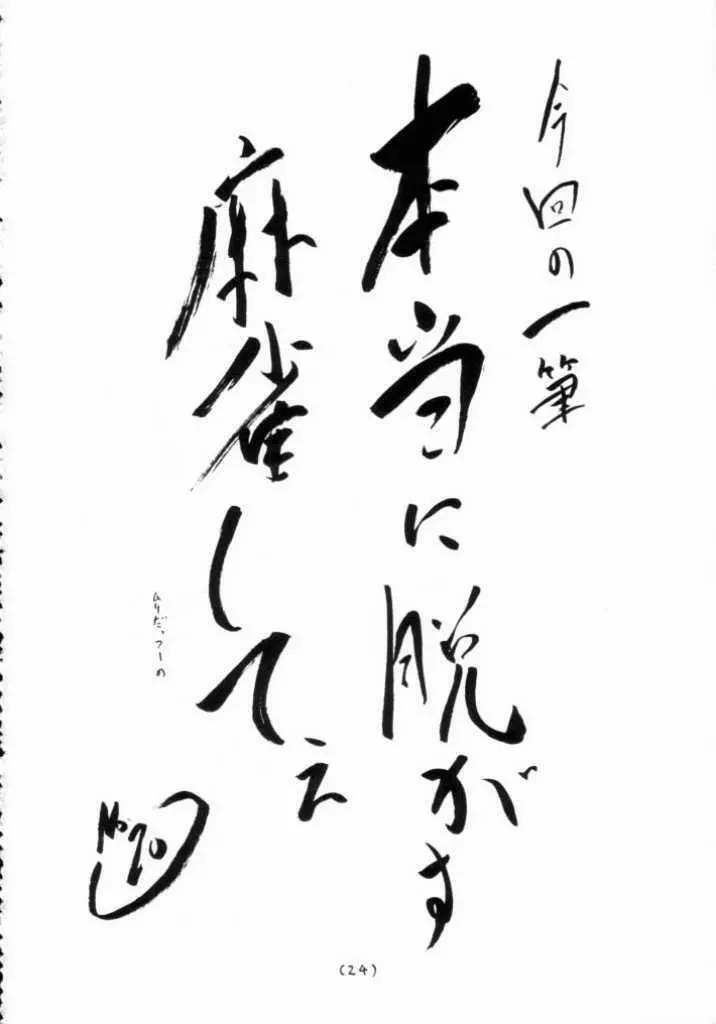 今回の一筆
本当に脱がす
麻雀してぇ
ムリだっつーの
No.70
(24)